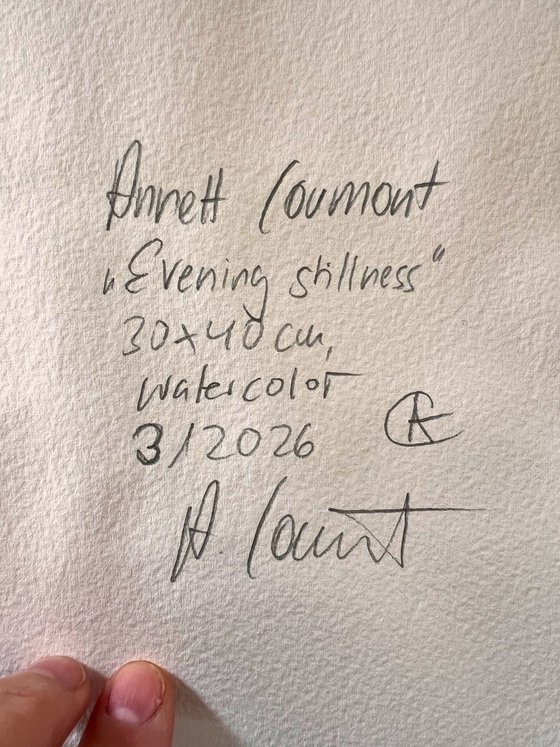 Annett Coumont
„Evening stillness“
30x40 cm,
watercolor
3/2026
A. Coumont